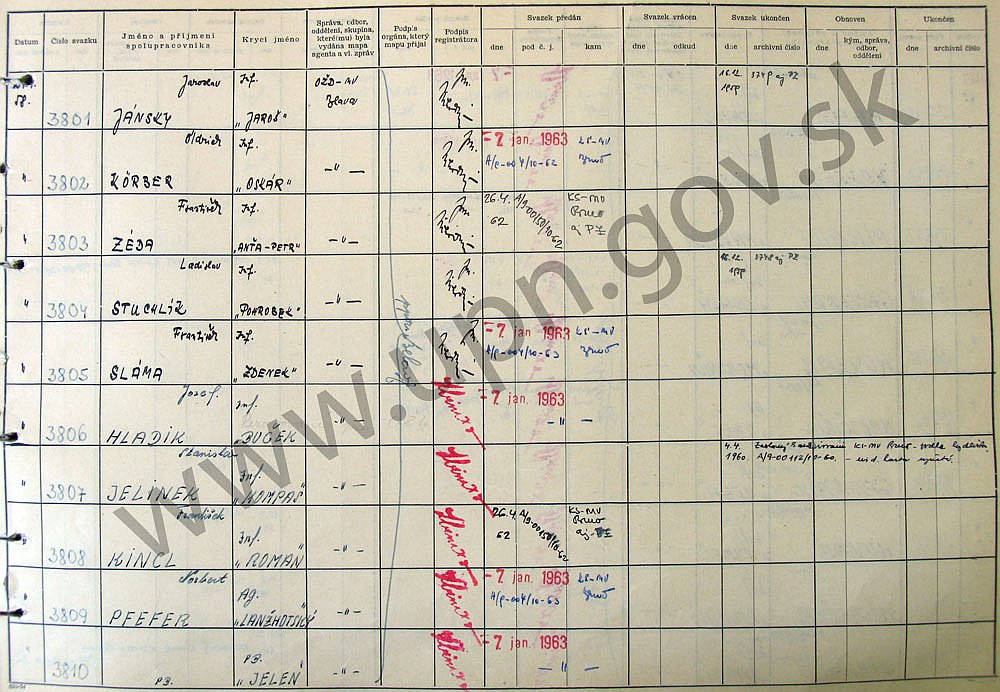 Datum
Číslo svazku
Jméno a příjmení spolupracovníka
Krycí jméno
Správa, odbor, oddělení, skupina, které(mu) byla vydána mapa agenta a vl. zpráv
Podpis orgána, který mapu přijal
Podpis registrátora
Svazek předán
dne
pod č. j.
kam
Svazek vrácen
dne
odkud
Svazek ukončen
dne
archivní číslo
Obnoven
dne
kým, správa, odbor, oddělení
Ukončen
dne
archivní číslo
58.
3801
Jaroslav
JÁNSKY
Inf.
„JAROŠ"
OŽD-MV
16.12.
" 3802
Oldřich
KÖRBER
Inf.
„OSKÁR"
—"—
-7. jan. 1963
A/9-004/10-62
KS-MV
" 3803
František
ZÉDA
Inf.
„ANŤA-PETR"
—"—
26.4.
62
A/9-00150/10-62
KS-MV
Brno
aj PZ
" 3804
Ladislav
STUCHLÍK
Inf.
„POHROBEK"
—"—
16.12.
" 3805
František
SLÁMA
Inf.
„ZDENEK"
—"—
-7. jan. 1963
A/9-004/10-63
KS-MV
" 3806
Jozef.
HLADÍK
Inf.
„BUČEK"
—"—
-7. jan. 1963
—"—
" 3807
Stanislav
JELÍNEK
Inf.
„KOMPAS"
—"—
4.4.
1960
A/9-00112/10-60.
KS-MV Brno
" 3808
František
KINCL
Inf.
„ROMAN"
—"—
26.4.
62
A/9-00150/10-62
KS-MV
Brno
aj-PZ
" 3809
Norbert
PFEFER
Ag.
„LANŽHOTSKÝ"
—"—
-7. jan. 1963
A/9-004/10-63
KS-MV
" 3810
PZ.
PZ.
„JELEŇ"
—"—
-7. jan. 1963
—"—
www.upn.gov.sk